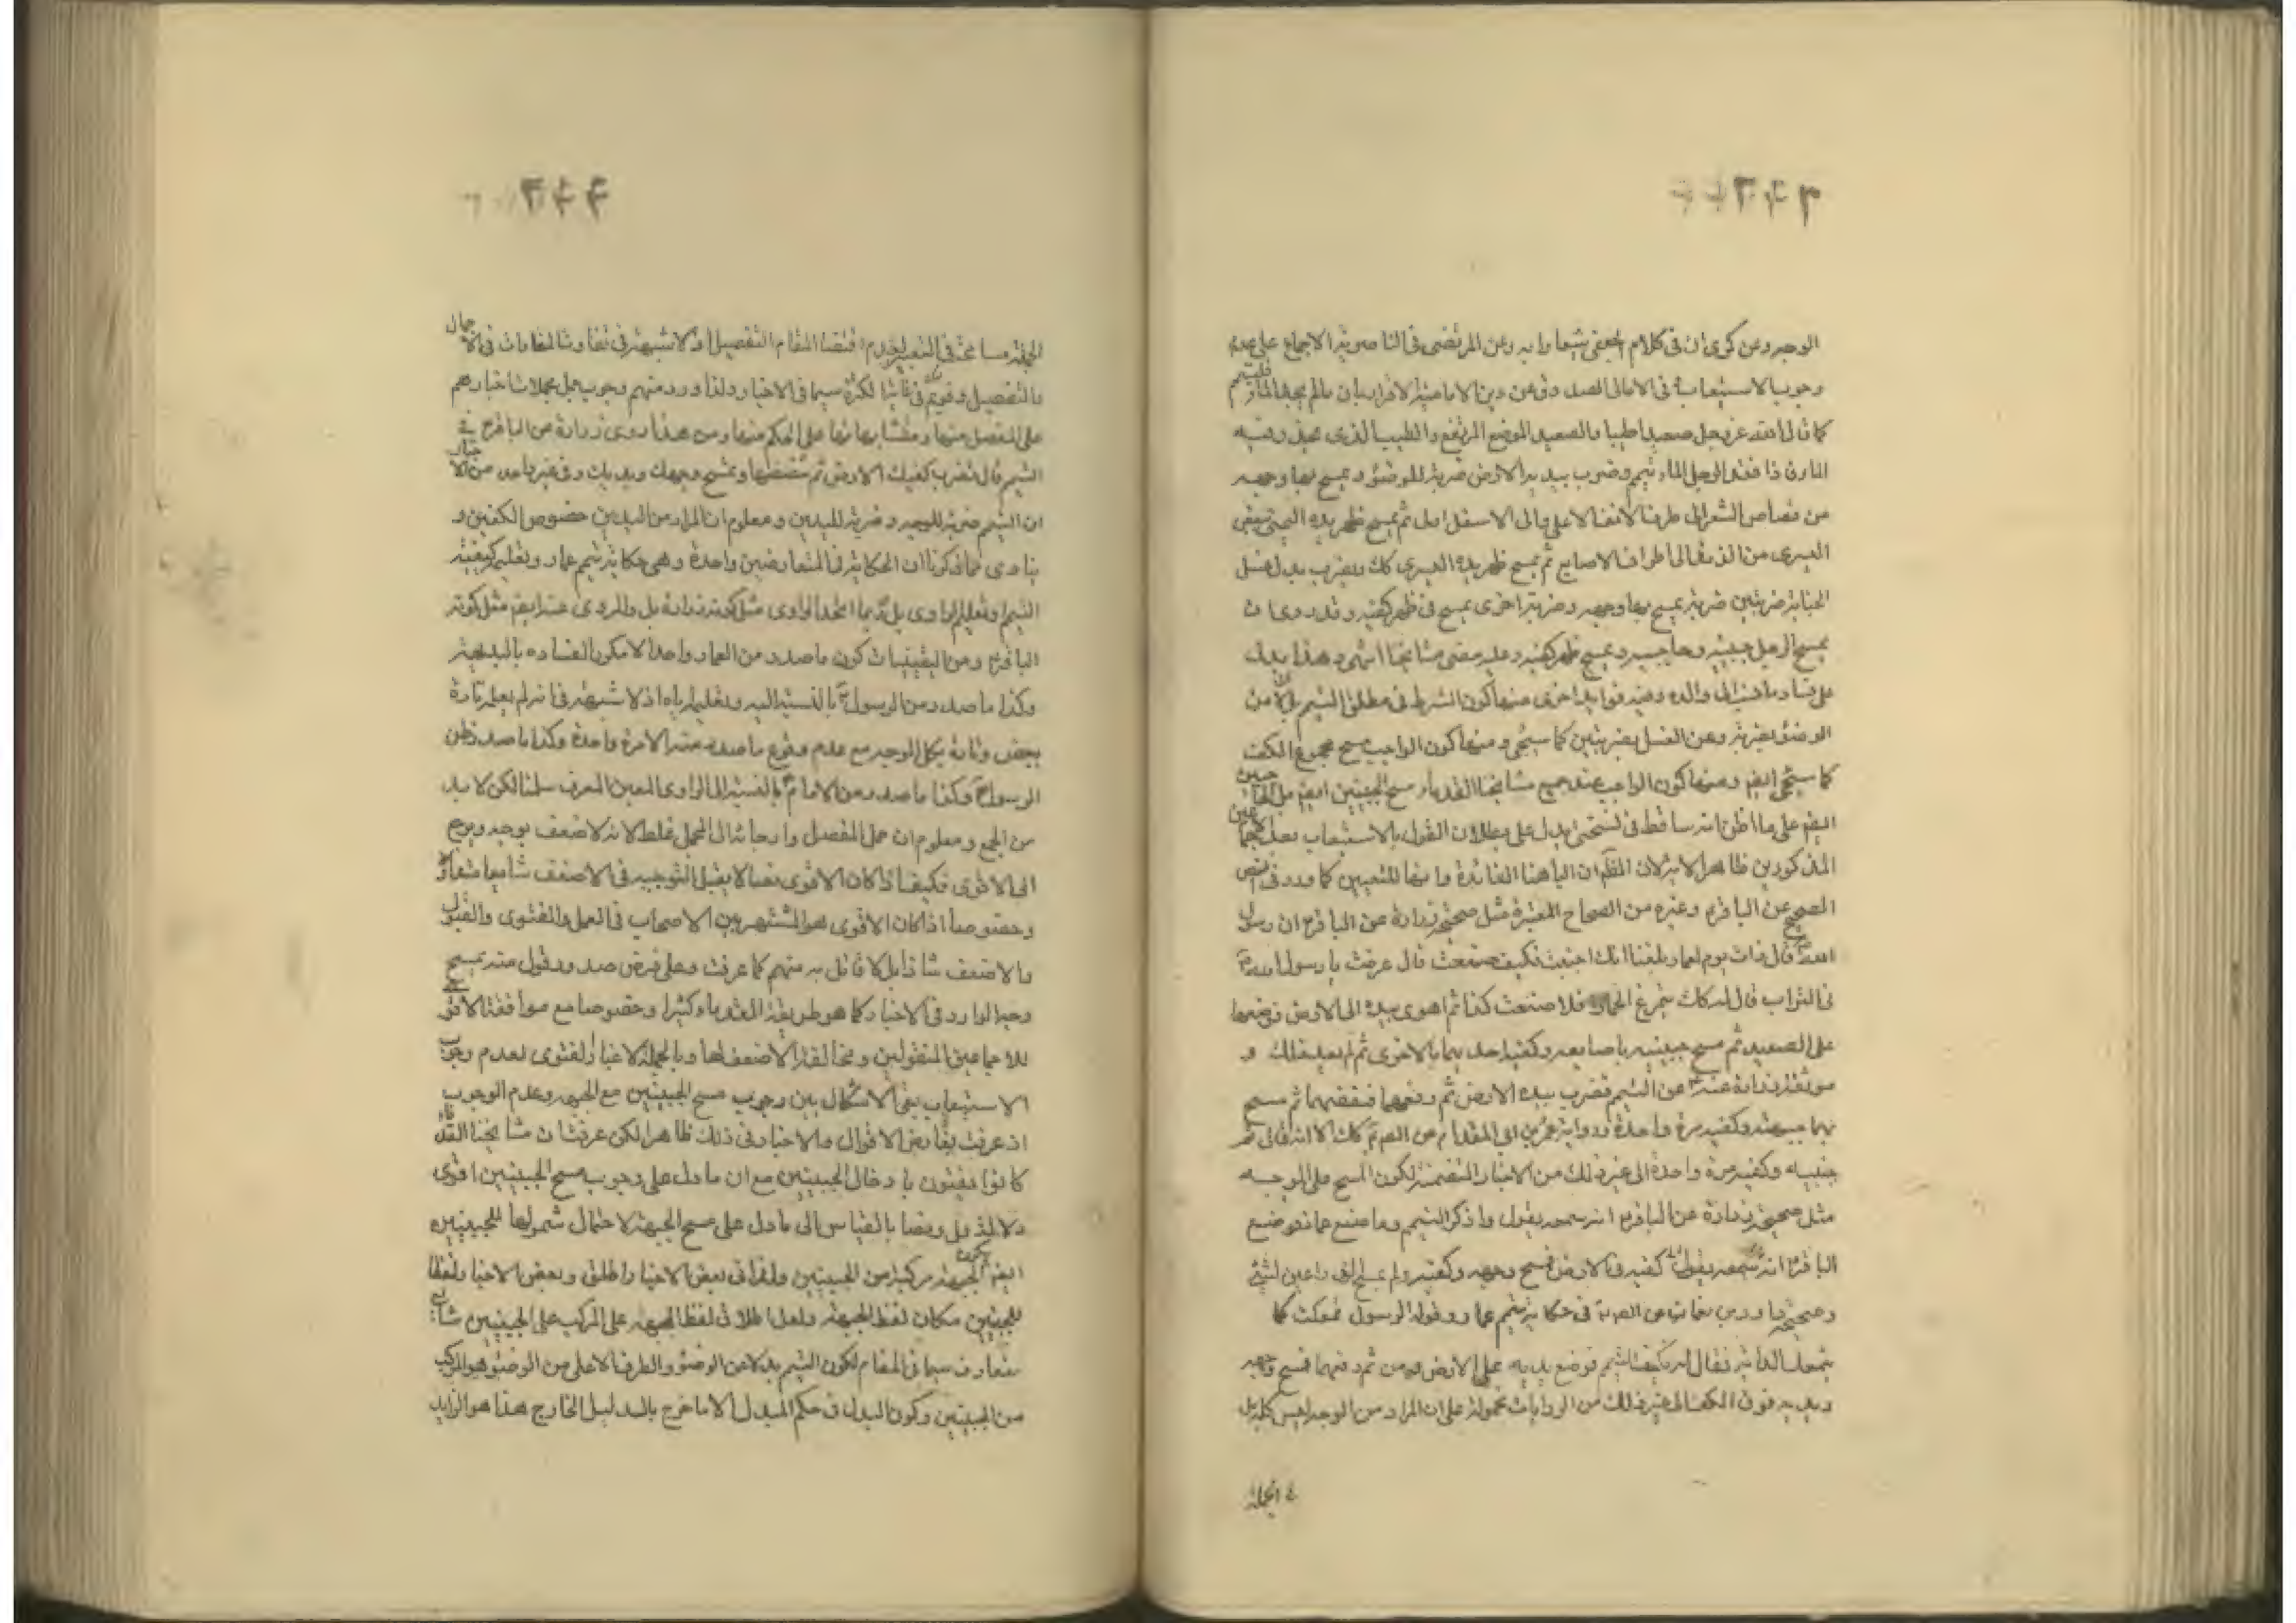 الوجه وعن كرى ان فى كلام الجعفى يشعر به وعن المرتضى فى الناصرية الاجماع على عدم
وجوب الاستيعاب فى الامالى الصدوق عن دين الامامية الاقرار بان من لم يجد الماء فليتيمم
كما قال الله عز وجل صعيدا طيبا والصعيد الموضع المرتفع والطيب الذى ينحدر عنه
الماء فاذا فقد الرجل الماء تيمم وضرب بيديه الارض ضربة للوضوء ويمسح بها وجهه
من قصاص الشعر الى طرف الانف الاعلى والى الاسفل اولى ثم يمسح ظهر يده اليمنى
اليسرى من الزند الى اطراف الاصابع ثم يمسح ظهر يده اليسرى كك ويضرب بدل غسل
الجنابة ضربتين ضربة يمسح بها وجهه وضربة اخرى يمسح فى ظهر كفيه وقد روى ان
يمسح الرجل جبينيه وحاجبيه ويمسح ظهر كفيه وعليه مضى مشايخنا انتهى وهذا يدل
على والده وفيه فوايد اخرى منها كون الشرط فى مطلق التيمم بدلا من
الوضوء بضربة وعن الغسل بضربتين كما سيجئ ومنها كون الواجب مسح مجموع الكف
كما سيجئ ايضا ومنها كون الواجب عند جميع مشايخنا القدماء مسح الجبينين ايضا بل الحاجبين
ايضا على ما اظن انه ساقط فى نسختى يدل على بطلان القول بالاستيعاب بعد الاجماعين
المذكورين ظاهر الاية لان الظاهر ان الباء هنا الفائدة وانها للتبعيض كما ورد فى النص
الصحيح عن الباقر ع وغيره من الصحاح المعتبرة مثل صحيحة زرارة عن الباقر ع ان رسول
الله ص قال ذات يوم لعمار بلغنا انك اجنبت فكيف صنعت قال عرفت يا رسول الله ص
فى التراب قال له كك يتمرغ الحمار افلا صنعت كذا ثم اهوى بيده الى الارض فوضعها
على الصعيد ثم مسح جبينيه باصابعه وكفيه احديهما بالاخرى ثم لم يعد ذلك و
موثقة زرارة عنه ع عن التيمم فضرب بيده الارض ثم رفعها فنفضهما ثم مسح
بهما جبهته وكفيه مرة واحدة ورواية عمرو بن ابى المقدام عن الصادق ع كك الا انه قال ثم
جنبيه وكفيه مرة واحدة الى غير ذلك من الاخبار المتضمنة لكون المسح على الوجه
مثل صحيحة زرارة عن الباقر ع انه سمعه يقول وذكر التيمم وما صنع عمار فوضع
الباقر ع كفيه فى الارض فمسح وجهه وكفيه ولم يمسح الذراعين بشئ
وصحيحة داود بن نعمان عن الصادق ع فى حكاية تيمم عمار وقوله الرسول تمعكت كما
يتمعك الدابة فقال له كيف التيمم فوضع يديه على الارض ثم رفعهما فمسح وجهه
ويديه فوق الكف الى غير ذلك من الروايات محمولة على ان المراد من الوجه ليس كله بل
الجملة
الجملة مسامحة فى التعبير لعدم اقتضاء المقام التفصيل اذ لا شبهة فى تفاوت المقامات فى الاجمال
والتفصيل وقوعه فى غاية الكثرة سيما فى الاخبار ولذا ورد منهم وجوب حمل مجملات اخبارهم
على المفصل منها ومتشابهاتها على المحكم منها ومن هذا روى زرارة عن الباقر ع فى
التيمم قال تضرب كفيك الارض ثم تنفضهما وتمسح وجهك ويديك وفى غير واحد من الاخبار
ان التيمم ضربة للوجه وضربة لليدين ومعلوم ان المراد من اليدين خصوص الكفين و
ينادى بما ذكرنا ان الحكاية فى المتعارضين واحدة وهى حكاية تيمم عمار وتعليم كيفية
التيمم وتعليم الراوى بل ربما اتحد الراوى مثل كونه زرارة بل والمروى عنه ايضا مثل كونه
الباقر ع ومن اليقينيات كون ما صدر من العمار واحدا لا مكررا لفساده بالبديهة
وكذا ما صدر من الرسول ص بالنسبة اليه وتعليمه اياه اذ لا شبهة فى انه لم يعلم تارة
ببعض وتارة بكل الوجه مع عدم وقوع ما صدر منه الا مرة واحدة وكذا ما صدر عن
الرسول ص وكذا ما صدر من الامام ع بالنسبة الى الراوى المعين المعرف سلمنا لكن لا بد
من الجمع ومعلوم ان حمل المفصل وارجاعه الى المجمل غلط لانه الاضعف يوجه ويرجع
الى الاقوى فكيف اذا كان الاقوى نصا لا يقبل التوجيه فى الاضعف شايعا متعارفا
وخصوصا اذا كان الاقوى هو المشتهر بين الاصحاب فى العمل والفتوى والقبول
والاضعف شاذ بل لا قائل به منهم كما عرفت وعلى فرض صدور قول منه بمسح
وجه الوارد فى الاخبار كما هو طريقة القدماء كثيرا وخصوصا مع موافقة الاقوى
للاجماعين المنقولين ومخالفة الاضعف لها وبالجملة لا غبار لفتوى لعدم وجوب
الاستيعاب بقى الاشكال بين وجوب مسح الجبينين مع الجبهة وعدم الوجوب
اذ عرفت تعارض الاقوال والاخبار فى ذلك ظاهرا لكن عرفت ان مشايخنا القدماء
كانوا يفتون بادخال الجبينين مع ان ما دل على وجوب مسح الجبينين اقوى
دلالة بل ونصا بالقياس الى ما دل على مسح الجبهة لاحتمال شمولها للجبينين
ايضا لكون الجبهة مركبة من الجبينين ولذا فى بعض الاخبار اطلق وبعض الاخبار لفظا
للجبينين مكان لفظ الجبهة ولعل اطلاق لفظ الجبهة على المركب على الجبينين شايع
متعارف سيما فى المقام لكون التيمم بدلا عن الوضوء والطرف الاعلى من الوضوء هو المركب
من الجبينين وكون البدل فى حكم المبدل الا ما خرج بالدليل الخارج هذا هو الزايد